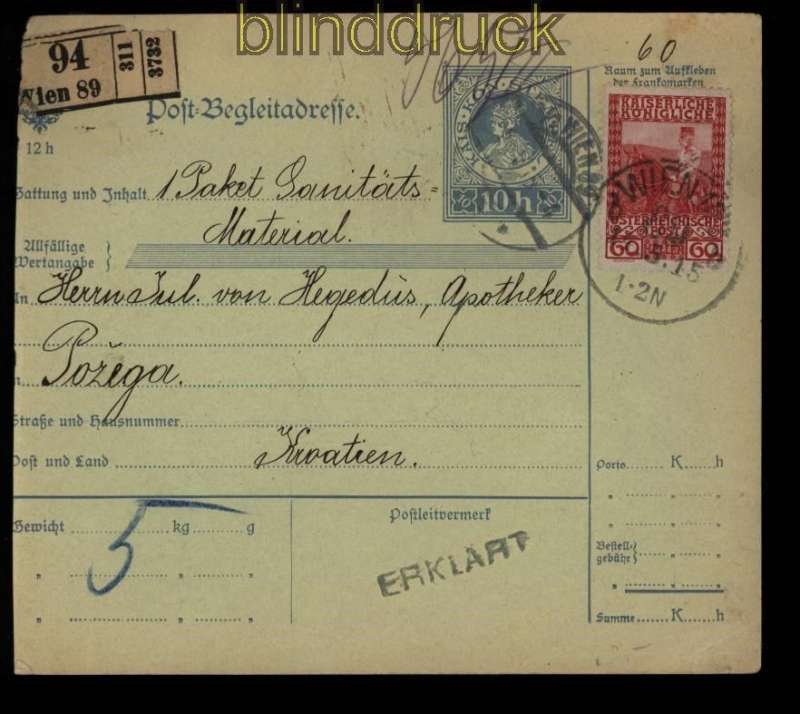 blinddruck
94
Wien 89
311
3732
60
Raum zum Aufkleben
der Frankomarken
Post-Begleitadresse.
12 h
KAIS. KÖN.
10 h
KAISERLICHE
KÖNIGLICHE
ÖSTERREICHISCHE
POST
60 60
WIEN
WIEN
15
1-2N
Gattung und Inhalt 1 Paket Sanitäts=
Material.
Allfällige
Wertangabe
An Herrn Jul. von Hegedüs, Apotheker
Požega.
Straße und Hausnummer
Post und Land Kroatien.
Porto K h
Gewicht 5 kg g
Postleitvermerk
Bestell-
gebühr
ERKLÄRT
Summe K h